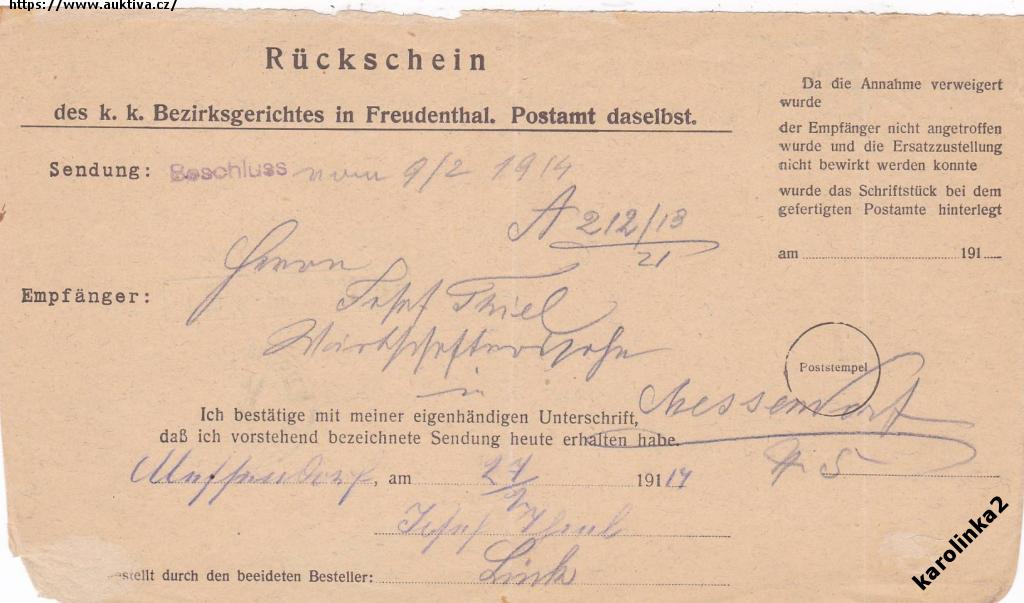 https://www.auktiva.cz/
Rückschein
des k. k. Bezirksgerichtes in Freudenthal. Postamt daselbst.
Sendung: Beschluss vom 9/2 1914
A 212/13
21
Herrn
Empfänger:
Josef Thiel
in
Messendorf
Ich bestätige mit meiner eigenhändigen Unterschrift,
daß ich vorstehend bezeichnete Sendung heute erhalten habe.
Messendorf, am 27/2 19114
Josef Thiel
estellt durch den beeideten Besteller: Link
Da die Annahme verweigert
wurde
der Empfänger nicht angetroffen
wurde und die Ersatzzustellung
nicht bewirkt werden konnte
wurde das Schriftstück bei dem
gefertigten Postamte hinterlegt
am 191
Poststempel
karolinka2